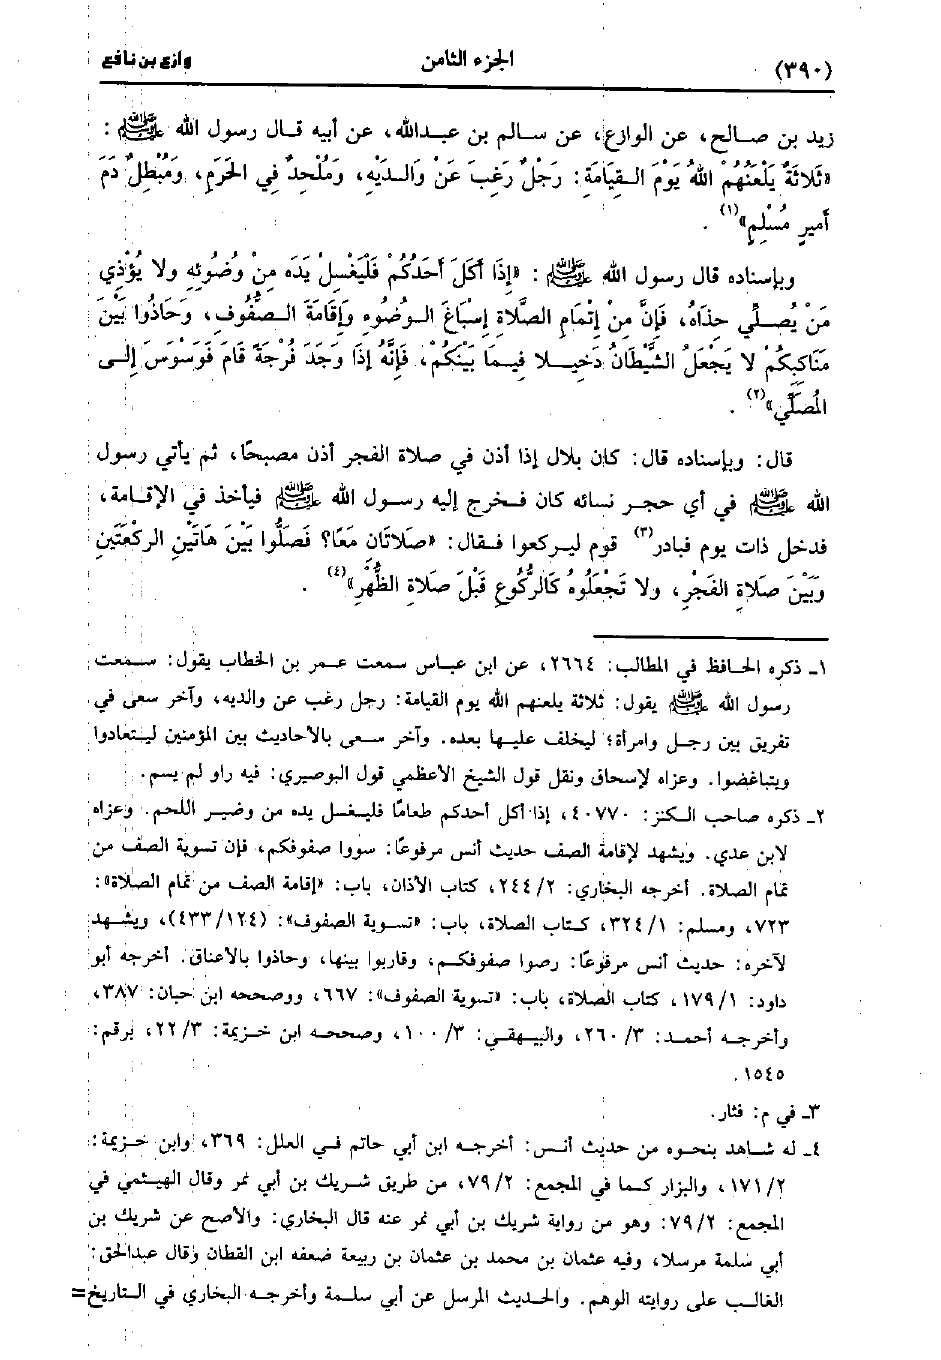 (٣٩٠) الجزء الثامن وازع بن نافع
زيد بن صالح، عن الوازع، عن سالم بن عبدالله، عن أبيه قال رسول الله ﷺ :
«ثَلَاثَةٌ يَلْعَنُهُمْ اللهُ يَوْمَ القِيَامَةِ: رَجُلٌ رَغِبَ عَنْ وَالدَيْهِ، وَمُلْحِدٌ فِي الحَرَمِ، ومُبْطِلٌ دَمَ
أَمِيرِ مُسْلِمٍ»(١) .
وبإسناده قال رسول الله ﷺ : «إِذَا أَكَلَ أَحَدُكُمْ فَلْيَغْسِلْ يَدَه مِنْ وُضُوئِهِ ولا يُؤْذِي
مَنْ يُصَلِّي حِذَاهُ، فَإِنَّ مِنْ إِتْمَامِ الصَّلَاةِ إِسْبَاغَ الوُضُوءِ وإِقَامَةَ الصُّفُوفِ، وَحَاذُوا بَيْنَ
مَنَاكِبِكُمْ لا يَجْعَلُ الشَّيْطَانُ دَخِيلا فِيمَا بَيْنَكُمْ، فَإِنَّهُ إِذَا وَجَدَ فُرْجَةً قَامَ فَوَسْوَسَ إِلى
المُصَلِّي»(٢) .
قال: وبإسناده قال: كان بلال إذا أذن في صلاة الفجر أذن مصبحًا، ثم يأتي رسول
الله ﷺ في أي حجر نسائه كان فخرج إليه رسول الله ﷺ فيأخذ في الإقامة،
فدخل ذات يوم فبادر(٣) قوم ليركعوا فقال: «صَلَاتَان مَعًا؟ فَصَلُّوا بَيْنَ هَاتَيْنِ الركْعَتَيْنِ
وَبَيْنَ صَلَاةِ الفَجْرِ، ولا تَجْعَلُوهُ كَالرُّكُوعِ قَبْلَ صَلَاةِ الظُّهْرِ»(٤) .
١ـ ذكره الحافظ في المطالب: ٢٦٦٤، عن ابن عباس سمعت عمر بن الخطاب يقول: سمعت
رسول الله ﷺ يقول: ثلاثة يلعنهم الله يوم القيامة: رجل رغب عن والديه، وآخر سعى في
تفريق بين رجل وامرأة؛ ليخلف عليها بعده. وآخر سعى بالأحاديث بين المؤمنين ليتعادوا
ويتباغضوا. وعزاه لإسحاق ونقل قول الشيخ الأعظمي قول البوصيري: فيه راو لم يسم.
٢ـ ذكره صاحب الكنز: ٤٠٧٧٠، إذا أكل أحدكم طعامًا فليغسل يده من وضير اللحم. وعزاه
لابن عدي. ويشهد لإقامة الصف حديث أنس مرفوعًا: سووا صفوفكم، فإن تسوية الصف من
تمام الصلاة. أخرجه البخاري: ٢/ ٢٤٤، كتاب الأذان، باب: «إقامة الصف من تمام الصلاة»:
٧٢٣، ومسلم: ١/ ٣٢٤، كتاب الصلاة، باب: «تسوية الصفوف»: (١٢٤/ ٤٣٣)، ويشهد
لآخره: حديث أنس مرفوعًا: رصوا صفوفكم، وقاربوا بينها، وحاذوا بالأعناق. أخرجه أبو
داود: ١/ ١٧٩، كتاب الصلاة، باب: «تسوية الصفوف»: ٦٦٧، ووصححه ابن حبان: ٣٨٧،
وأخرجه أحمد: ٣/ ٢٦٠، والبيهقي: ٣/ ١٠٠، وصححه ابن خزيمة: ٣/ ٢٢، برقم:
١٥٤٥ .
٣ـ في م: فثار.
٤ـ له شاهد بنحوه من حديث أنس: أخرجه ابن أبي حاتم في العلل: ٣٦٩، وابن خزيمة:
٢/ ١٧١، والبزار كما في المجمع: ٢/ ٧٩، من طريق شريك بن أبي نمر وقال الهيثمي في
المجمع: ٢/ ٧٩: وهو من رواية شريك بن أبي نمر عنه قال البخاري: والأصح عن شريك بن
أبي سلمة مرسلا، وفيه عثمان بن محمد بن عثمان بن ربيعة ضعفه ابن القطان وقال عبدالحق:
الغالب على روايته الوهم. والحديث المرسل عن أبي سلمة وأخرجه البخاري في التاريخ=